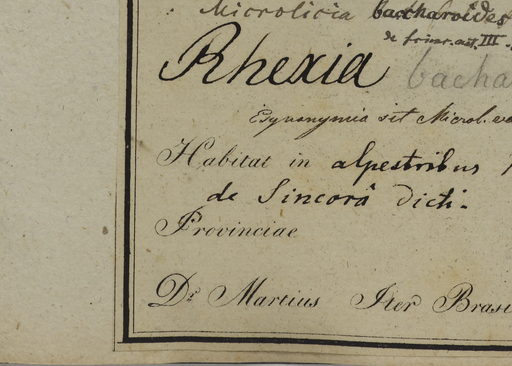 Microlicia baccharoides
de
III.
Rhexia bacha
sit Microl.
Habitat in alpestribus
de Sincorá dicti.
Provinciae
Dr. Martius Iter Bras